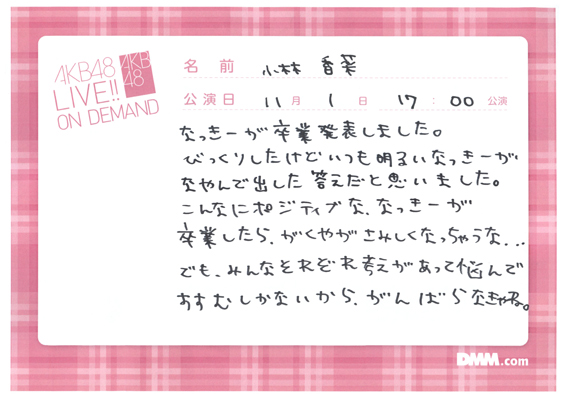 AKB48
LIVE!!
ON DEMAND
AKB
48
名前 小林 香菜
公演日 11月 1日 17:00 公演
なっきーが卒業発表しました。
びっくりしたけどいつも明るいなっきーが
なやんで出した答えだと思いました。
こんなにポジティブな、なっきーが
卒業したら、がくやがさみしくなっちゃうな...
でも、みんなそれぞれ考えがあって悩んで
すすむしかないから、がんばらなきゃね。
DMM.com